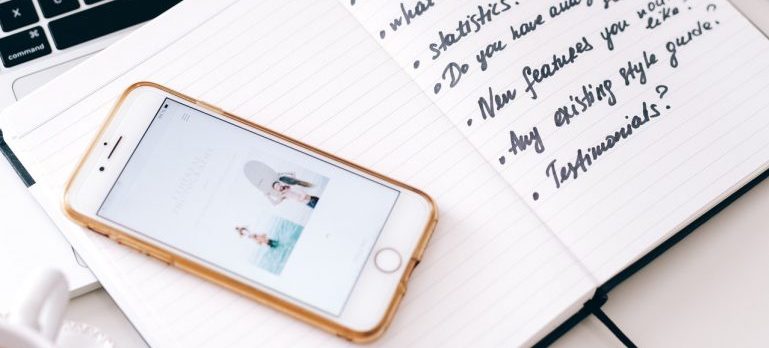 x
c
⌘
command
• what
• statistics?
• Do you have any
• New features you would like?
• Any existing style guide?
• Testimonials?